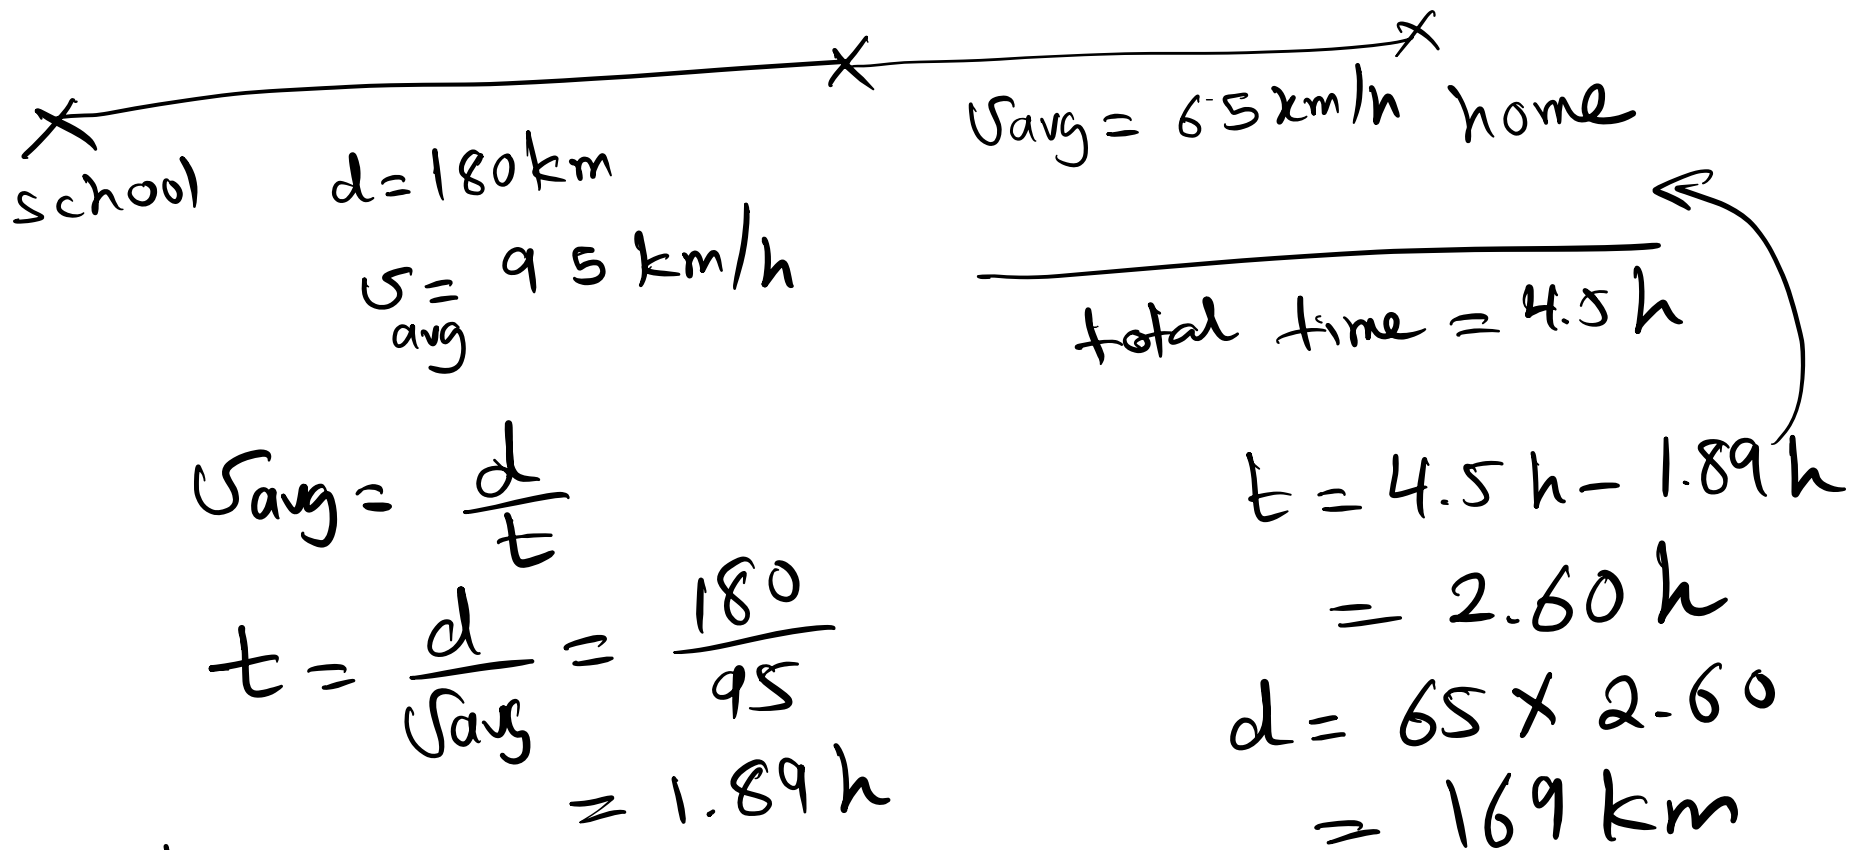 school
d = 180 km
v avg = 95 km/h
v avg = 65 km/h home
total time = 4.5 h
v avg = d/t
t = d/v avg = 180/95
= 1.89 h
t = 4.5 h - 1.89 h
= 2.60 h
d = 65 × 2.60
= 169 km